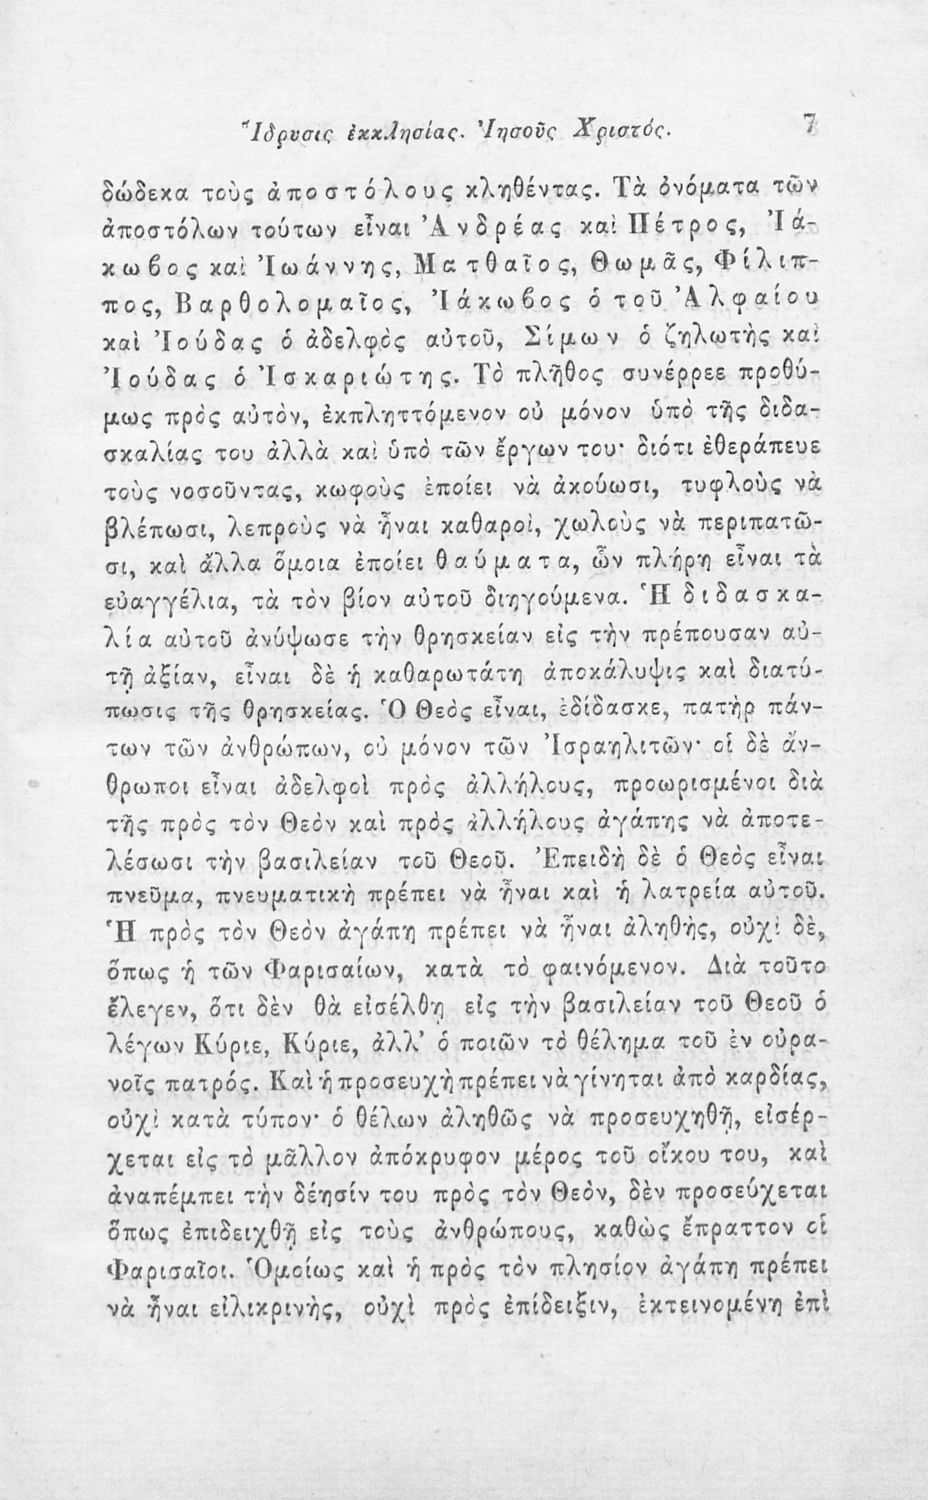 Ἵδρυσις ἐκκλησίας. Ἰησοῦς Χριστός. 7
δώδεκα τοὺς ἀποστόλους κληθέντας. Τὰ ὀνόματα τῶν
ἀποστόλων τούτων εἶναι Ἀνδρέας καὶ Πέτρος, Ἰά-
κωβος καὶ Ἰωάννης, Ματθαῖος, Θωμᾶς, Φίλιπ-
πος, Βαρθολομαῖος, Ἰάκωβος ὁ τοῦ Ἀλφαίου
καὶ Ἰούδας ὁ ἀδελφὸς αὐτοῦ, Σίμων ὁ ζηλωτὴς καὶ
Ἰούδας ὁ Ἰσκαριώτης. Τὸ πλῆθος συνέρρεε προθύ-
μως πρὸς αὐτὸν, ἐκπληττόμενον οὐ μόνον ὑπὸ τῆς διδα-
σκαλίας του ἀλλὰ καὶ ὑπὸ τῶν ἔργων του· διότι ἐθεράπευε
τοὺς νοσοῦντας, κωφοὺς ἐποίει νὰ ἀκούωσι, τυφλοὺς νὰ
βλέπωσι, λεπροὺς νὰ ἦναι καθαροὶ, χωλοὺς νὰ περιπατῶ-
σι, καὶ ἄλλα ὅμοια ἐποίει θαύματα, ὧν πλήρη εἶναι τὰ
εὐαγγέλια, τὰ τὸν βίον αὐτοῦ διηγούμενα. Ἡ διδασκα-
λία αὐτοῦ ἀνύψωσε τὴν θρησκείαν εἰς τὴν πρέπουσαν αὐ-
τῇ ἀξίαν, εἶναι δὲ ἡ καθαρωτάτη ἀποκάλυψις καὶ διατύ-
πωσις τῆς θρησκείας. Ὁ Θεὸς εἶναι, ἐδίδασκε, πατὴρ πάν-
των τῶν ἀνθρώπων, οὐ μόνον τῶν Ἰσραηλιτῶν· οἱ δὲ ἄν-
θρωποι εἶναι ἀδελφοὶ πρὸς ἀλλήλους, προωρισμένοι διὰ
τῆς πρὸς τὸν Θεὸν καὶ πρὸς ἀλλήλους ἀγάπης νὰ ἀποτε-
λέσωσι τὴν βασιλείαν τοῦ Θεοῦ. Ἐπειδὴ δὲ ὁ Θεὸς εἶναι
πνεῦμα, πνευματικὴ πρέπει νὰ ἦναι καὶ ἡ λατρεία αὐτοῦ.
Ἡ πρὸς τὸν Θεὸν ἀγάπη πρέπει νὰ ἦναι ἀληθὴς, οὐχὶ δὲ,
ὅπως ἡ τῶν Φαρισαίων, κατὰ τὸ φαινόμενον. Διὰ τοῦτο
ἔλεγεν, ὅτι δὲν θὰ εἰσέλθῃ εἰς τὴν βασιλείαν τοῦ Θεοῦ ὁ
λέγων Κύριε, Κύριε, ἀλλ’ ὁ ποιῶν τὸ θέλημα τοῦ ἐν οὐρα-
νοῖς πατρός. Καὶ ἡ προσευχὴ πρέπει νὰ γίνηται ἀπὸ καρδίας,
οὐχὶ κατὰ τύπον· ὁ θέλων ἀληθῶς νὰ προσευχηθῇ, εἰσέρ-
χεται εἰς τὸ μᾶλλον ἀπόκρυφον μέρος τοῦ οἴκου του, καὶ
ἀναπέμπει τὴν δέησίν του πρὸς τὸν Θεὸν, δὲν προσεύχεται
ὅπως ἐπιδειχθῇ εἰς τοὺς ἀνθρώπους, καθὼς ἔπραττον οἱ
Φαρισαῖοι. Ὁμοίως καὶ ἡ πρὸς τὸν πλησίον ἀγάπη πρέπει
νὰ ἦναι εἰλικρινὴς, οὐχὶ πρὸς ἐπίδειξιν, ἐκτεινομένη ἐπὶ